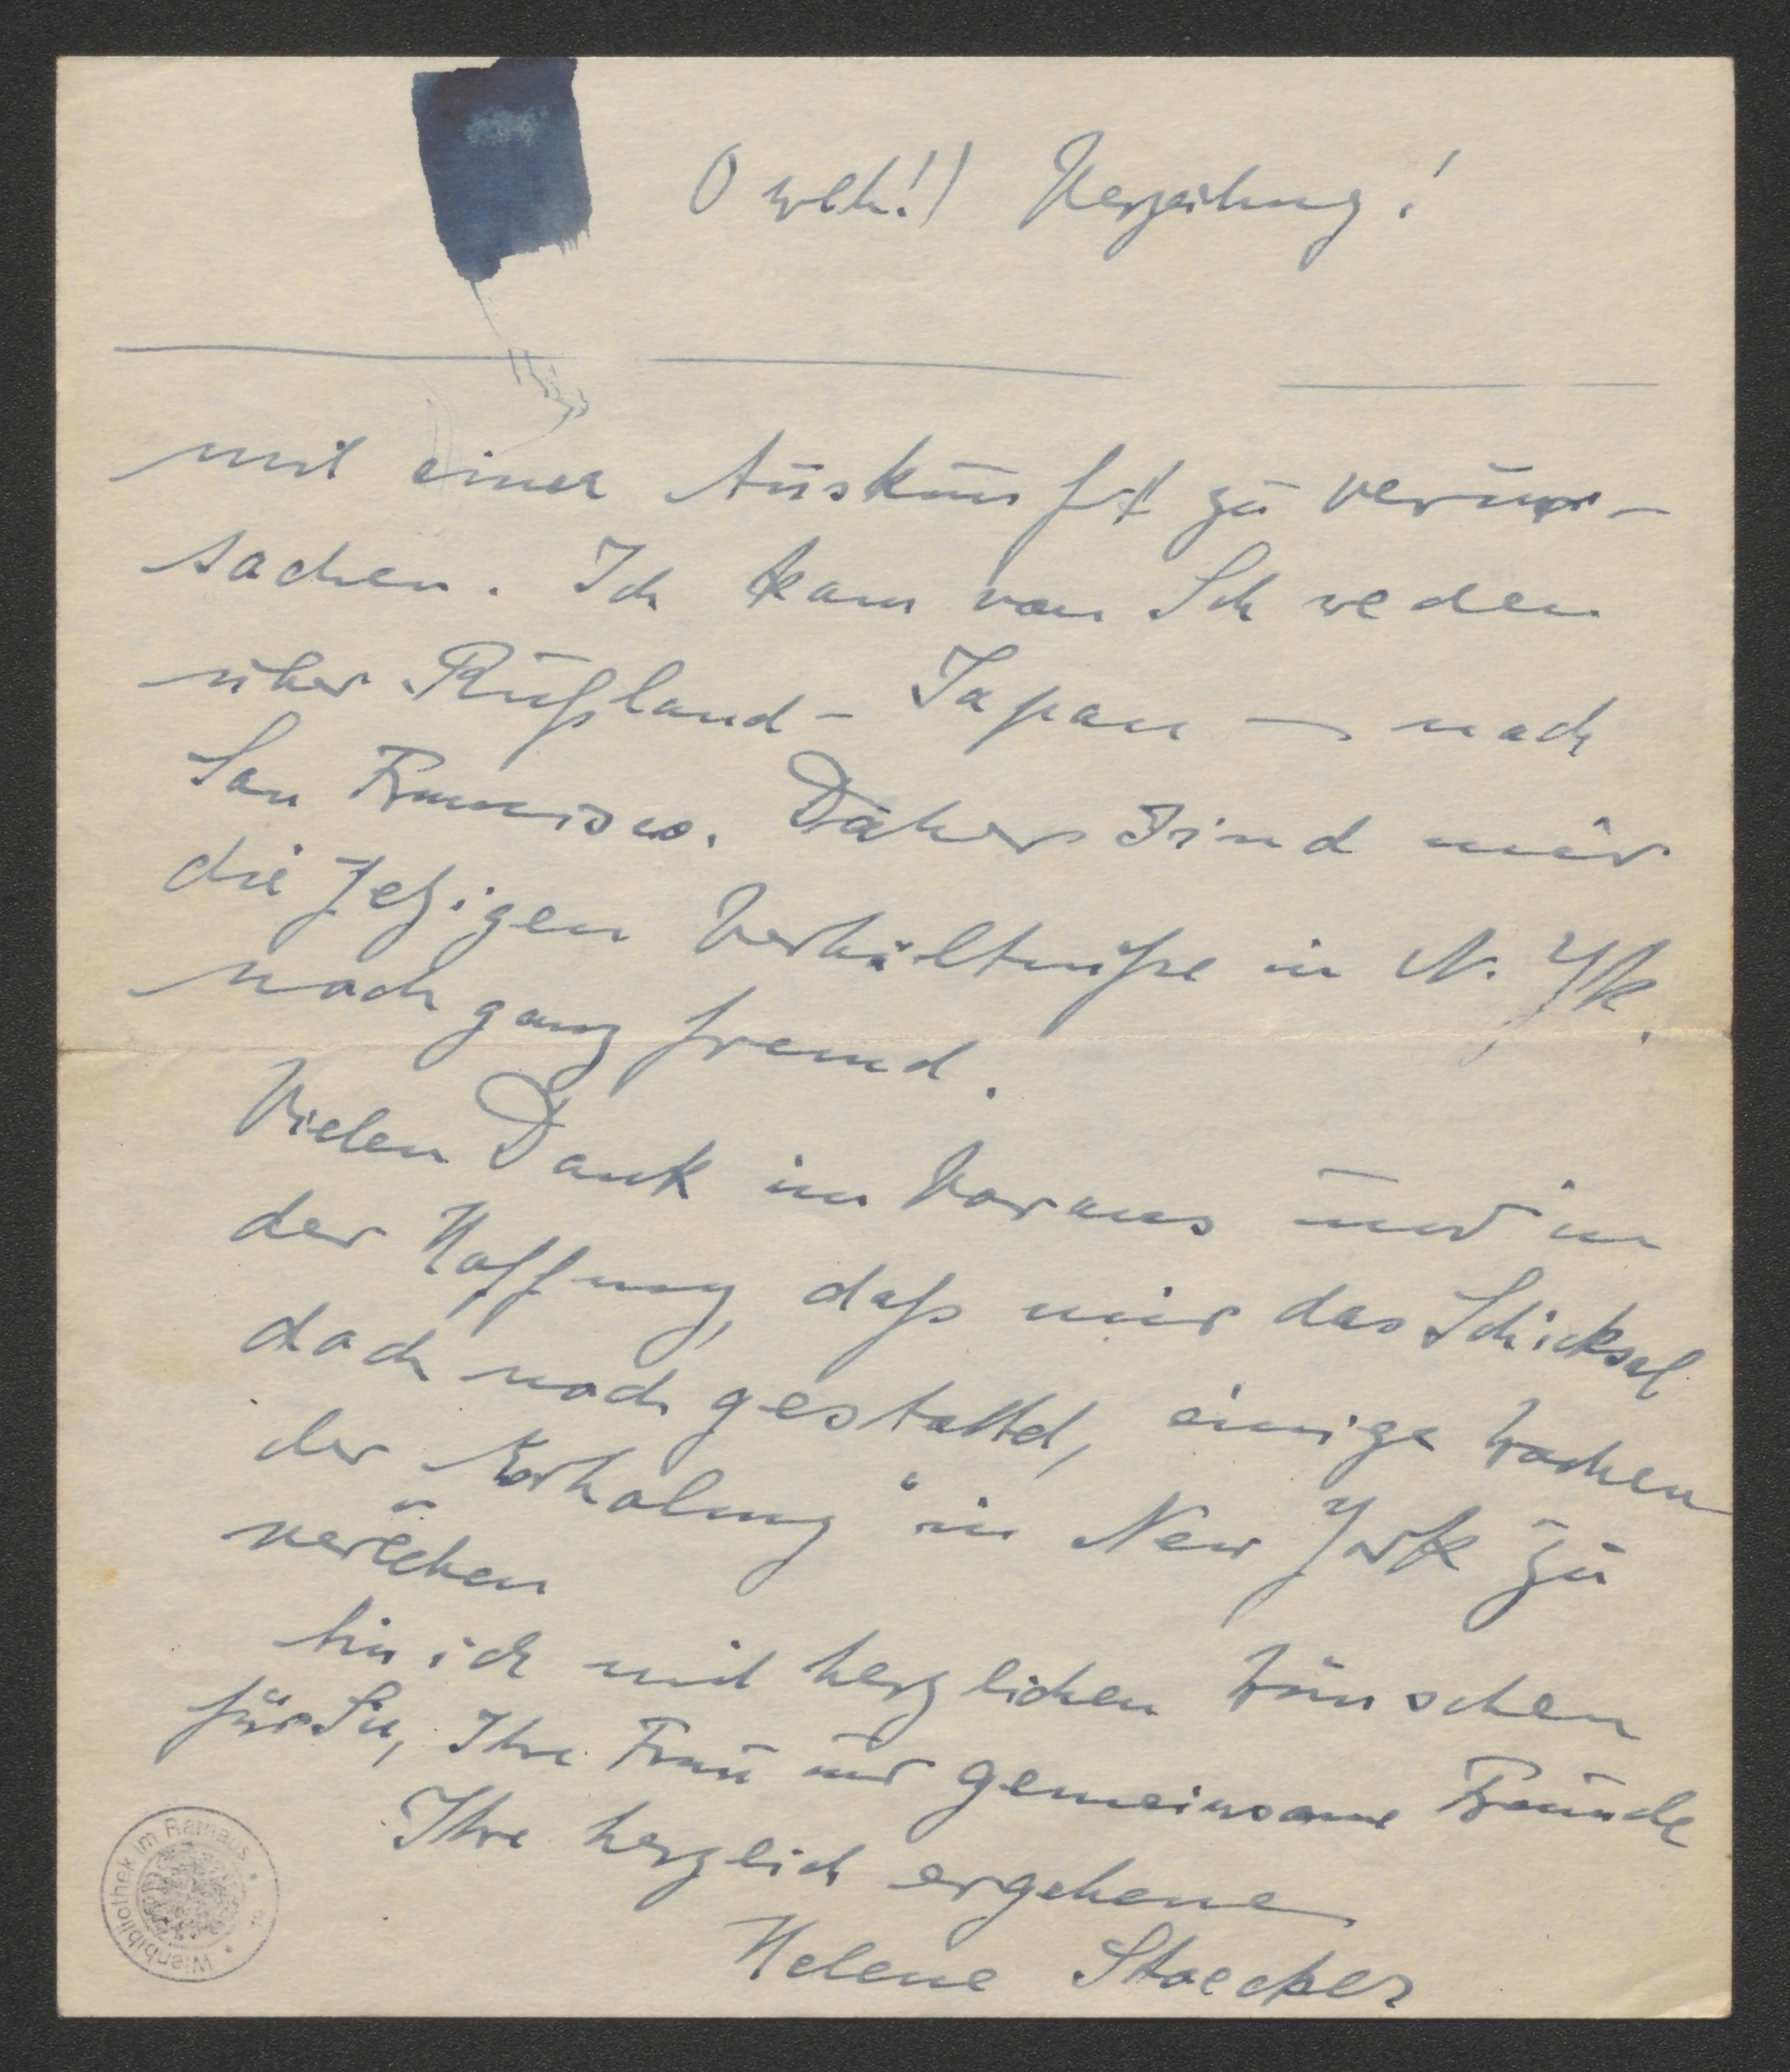 O weh!) Verzeihung!
mit einer Auskunft zu verur-
sachen. Ich kam von Schweden
über Rußland - Japan - nach
San Francisco. Daher sind mir
die jetzigen Verhältniße in N. Yk.
noch ganz fremd.
Vielen Dank im Voraus und in
der Hoffnung, daß mir das Schicksal
doch noch gestattet, einige Wochen
der „Erholung“ in New York zu
verleben
bin ich mit herzlichen Wünschen
für Sie, Ihre Frau und gemeinsame Freunde
Ihre herzlich ergebene
Helene Stoecker
Wienbibliothek im Rathaus